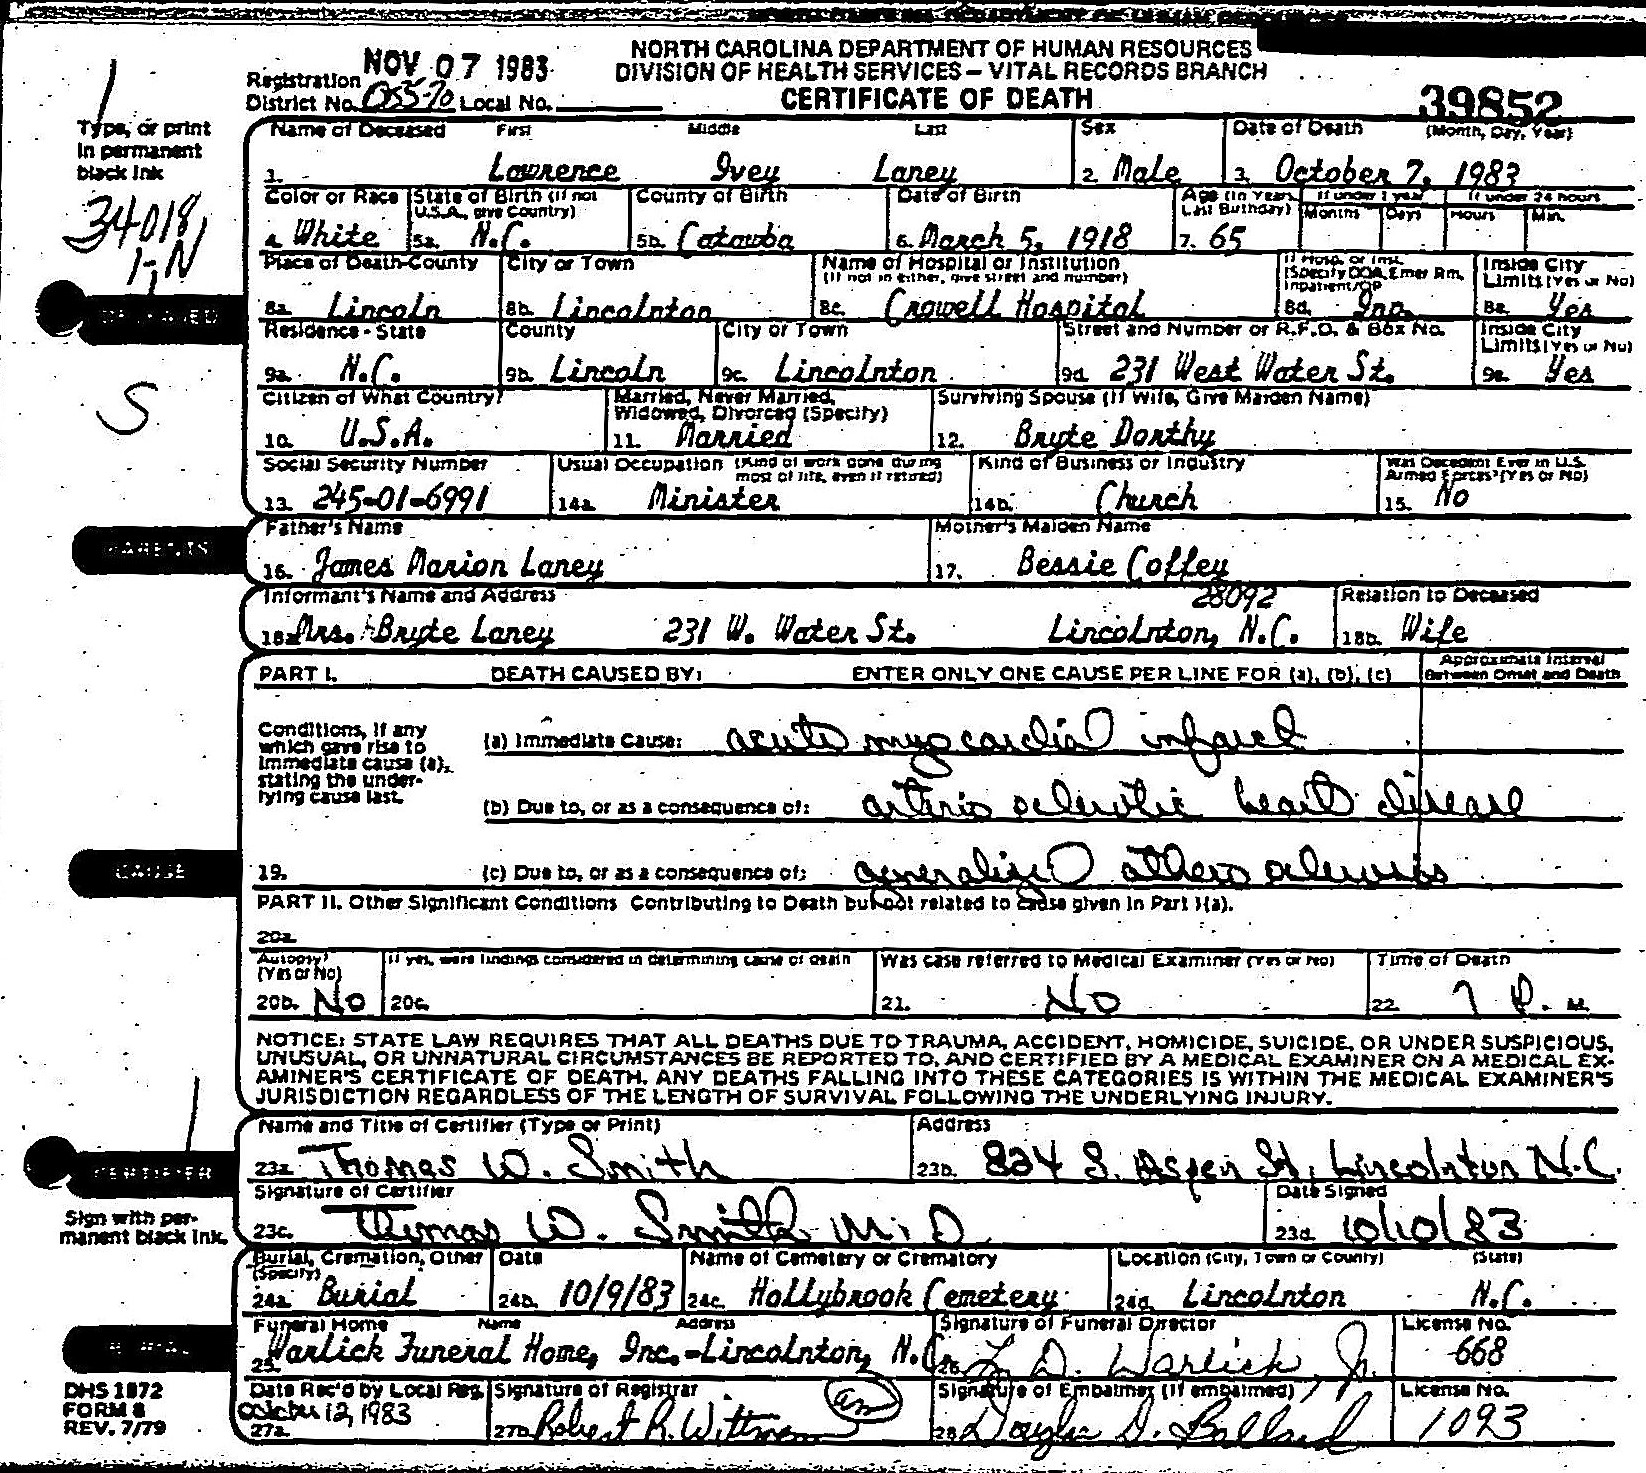 NORTH CAROLINA DEPARTMENT OF HUMAN RESOURCES
NOV 07 1983
DIVISION OF HEALTH SERVICES – VITAL RECORDS BRANCH
Registration District No. 055-70 Local No.
CERTIFICATE OF DEATH
39852
Type, or print in permanent black ink
34018
Name of Deceased First Middle Last Sex Date of Death (Month, Day, Year)
1. Lawrence Ivey Laney 2. Male 3. October 7, 1983
Color or Race State of Birth (if not U.S.A., give Country) County of Birth Date of Birth Age (in Years Last Birthday) If under 1 year Months Days If under 24 hours Hours Min.
4. White 5a. N.C. 5b. Catawba 6. March 5, 1918 7. 65
Place of Death-County City or Town Name of Hospital or Institution (If not in either, give street and number) If Hosp. or Inst. (Specify DOA, Emer Rm, Inpatient/OP Inside City Limits (Yes or No)
8a. Lincoln 8b. Lincolnton 8c. Crowell Hospital 8d. Inp. 8e. Yes
Residence - State County City or Town Street and Number or R.F.D. & Box No. Inside City Limits (Yes or No)
9a. N.C. 9b. Lincoln 9c. Lincolnton 9d. 231 West Water St. 9e. Yes
S
Citizen of What Country? Married, Never Married, Widowed, Divorced (Specify) Surviving Spouse (If Wife, Give Maiden Name)
10. U.S.A. 11. Married 12. Bryte Dorthy
Social Security Number Usual Occupation (Kind of work done during most of life, even if retired) Kind of Business or Industry Was Decedent Ever in U.S. Armed Forces? (Yes or No)
13. 245-01-6991 14a. Minister 14b. Church 15. No
PARENTS
Father's Name Mother's Maiden Name
16. James Marion Laney 17. Bessie Coffey
Informant's Name and Address 28092 Relation to Deceased
18a. Mrs. Bryte Laney 231 W. Water St. Lincolnton, N.C. 18b. Wife
PART I. DEATH CAUSED BY: ENTER ONLY ONE CAUSE PER LINE FOR (a), (b), (c) Approximate Interval Between Onset and Death
Conditions, if any which gave rise to immediate cause (a), stating the underlying cause last.
(a) Immediate Cause: acute myocardial infarct
(b) Due to, or as a consequence of: arterio sclerotic heart disease
CAUSE
19. (c) Due to, or as a consequence of: generalized athero sclerosis
PART II. Other Significant Conditions Contributing to Death but not related to cause given in Part I(a).
20a.
Autopsy? (Yes or No) If yes, were findings considered in determining cause of death Was case referred to Medical Examiner (Yes or No) Time of Death
20b. No 20c. 21. No 22. 7 P. M.
NOTICE: STATE LAW REQUIRES THAT ALL DEATHS DUE TO TRAUMA, ACCIDENT, HOMICIDE, SUICIDE, OR UNDER SUSPICIOUS,
UNUSUAL, OR UNNATURAL CIRCUMSTANCES BE REPORTED TO, AND CERTIFIED BY A MEDICAL EXAMINER ON A MEDICAL EX-
AMINER'S CERTIFICATE OF DEATH. ANY DEATHS FALLING INTO THESE CATEGORIES IS WITHIN THE MEDICAL EXAMINER'S
JURISDICTION REGARDLESS OF THE LENGTH OF SURVIVAL FOLLOWING THE UNDERLYING INJURY.
CERTIFIER
Name and Title of Certifier (Type or Print) Address
23a. Thomas W. Smith 23b. 824 S. Aspen St, Lincolnton N.C.
Signature of Certifier Date Signed
Sign with permanent black ink.
23c. Thomas W. Smith M.D 23d. 10/10/83
Burial, Cremation, Other (Specify) Date Name of Cemetery or Crematory Location (City, Town or County) (State)
24a. Burial 24b. 10/9/83 24c. Hollybrook Cemetery 24d. Lincolnton N.C.
BURIAL
Funeral Home Name Address Signature of Funeral Director License No.
25. Warlick Funeral Home, Inc.-Lincolnton, N.C. 26. D. Warlick, Jr. 668
DHS 1872
FORM 8
REV. 7/79
Date Rec'd by Local Reg. Signature of Registrar Signature of Embalmer (If embalmed) License No.
27a. October 12, 1983 27b. Robert R. 28. D. Ballard 1093